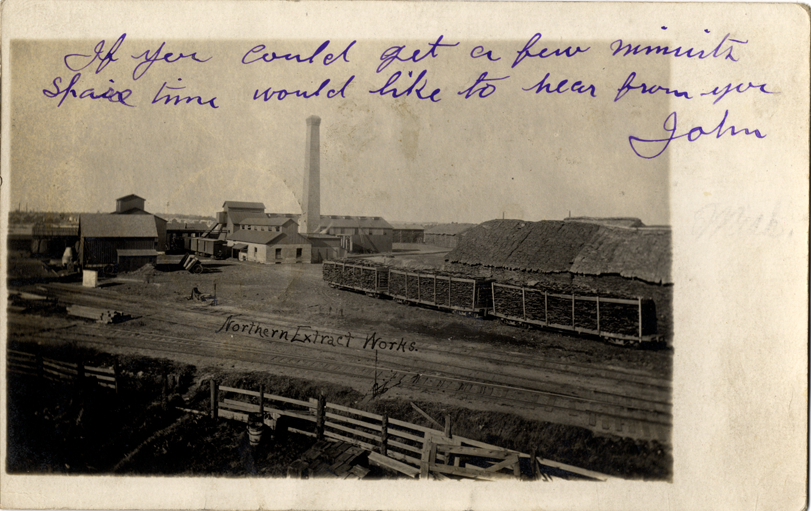 If you could get a few minuits
spare time would like to hear from you
John
Northern Extract Works.